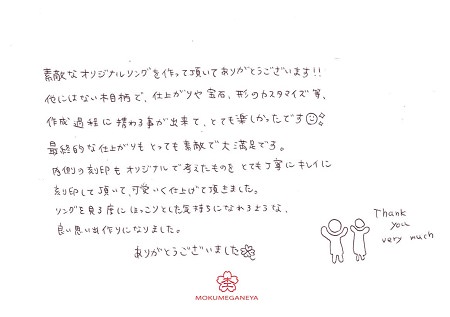 素敵なオリジナルリングを作って頂いてありがとうございます!!
他にはない木目柄で、仕上がりや宝石、形のカスタマイズ等、
作成過程に携わる事が出来て、とても楽しかったです
最終的な仕上がりもとっても素敵で大満足です。
内側の刻印もオリジナルで考えたものをとても丁寧にキレイに
刻印して頂いて、可愛いく仕上げて頂きました。
リングを見る度にほっこりとした気持ちになれるような、
良い思い出作りになりました。
ありがとうございました
Thank
you
very much
MOKUMEGANEYA